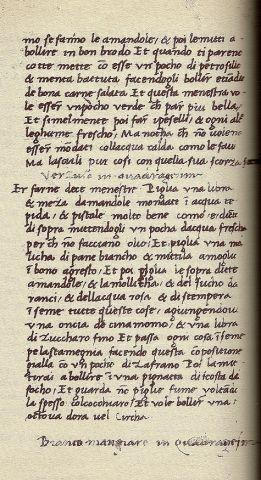 mo se fanno le amandole, & poi le mitti a
bollire in bon brodo Et quando ti pareno
cotte mette cō esse un pocho di petrosillo
& menta battuta facendogli boller etiādio
de bona carne salata Et questa menestra vo-
le esser un pocho verde ch par piu bella
Et similmente poi far i peselli, & ogni altro
leghume frescho; Ma nota ch nō voleno
esser mōdati coll acqua calda como le fave
Ma lassali pur cosi con quella sua scorza
Verzuso in quadragesima
Er farne dece menestre Piglia una libra
& meza damandole mondate ī acqua te-
pida, & pistale molto bene como e dicto
di sopra mittendogli un pocha dacqua frescha
per ch nō facciano olio; Et piglia una mo
licha di pane biancho & mittila a mollo
ī bono agresto; Et poi piglia le sopra dicte
amandole, & la mollicha; & del sucho di a
ranci, & dell acqua rosa & distempera
īseme tutte queste cose, agiungendovi
una oncia de cinamomo; & una libra
di Zuccharo fino Et passa ogni cosa īseme
per la stamegnia facendo questa cōpositione
gialla cō un pocho di Zafrano Poi la mit-
terai a bollire ī una pignatta discosta da
focho, Et guarda nō piglie fume voltādi
la spesso col cocchiaro; Et vole bollire una
octova dora vel circha.
Biancho mangiare in Quadragesima